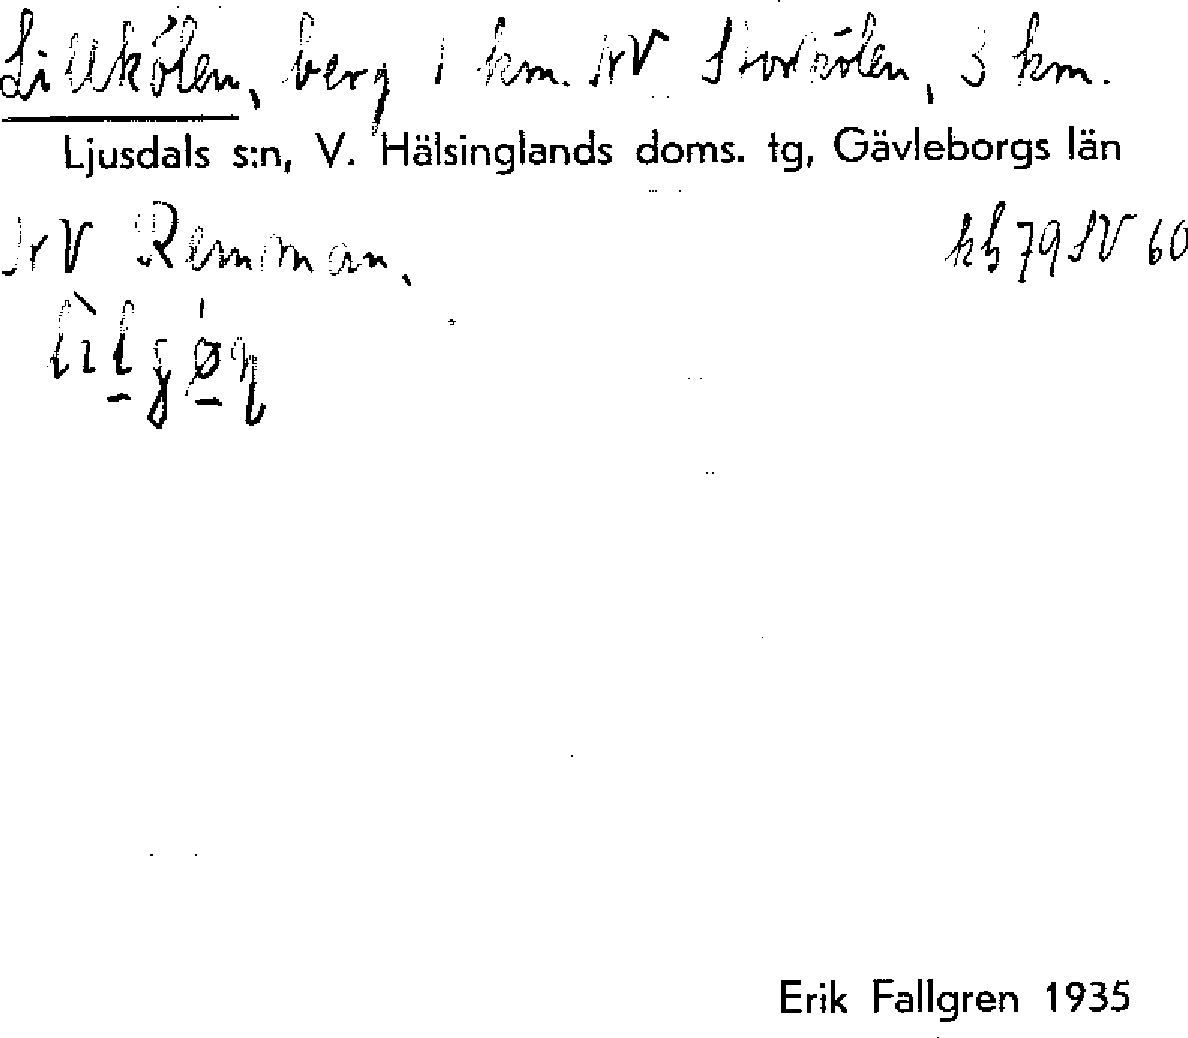 Lillkölen, berg 1 km. NV Storkölen, 3 km.
Ljusdals s:n, V. Hälsinglands doms. tg, Gävleborgs län
NV Remman. kb 79 SV 60
Erik Fallgren 1935